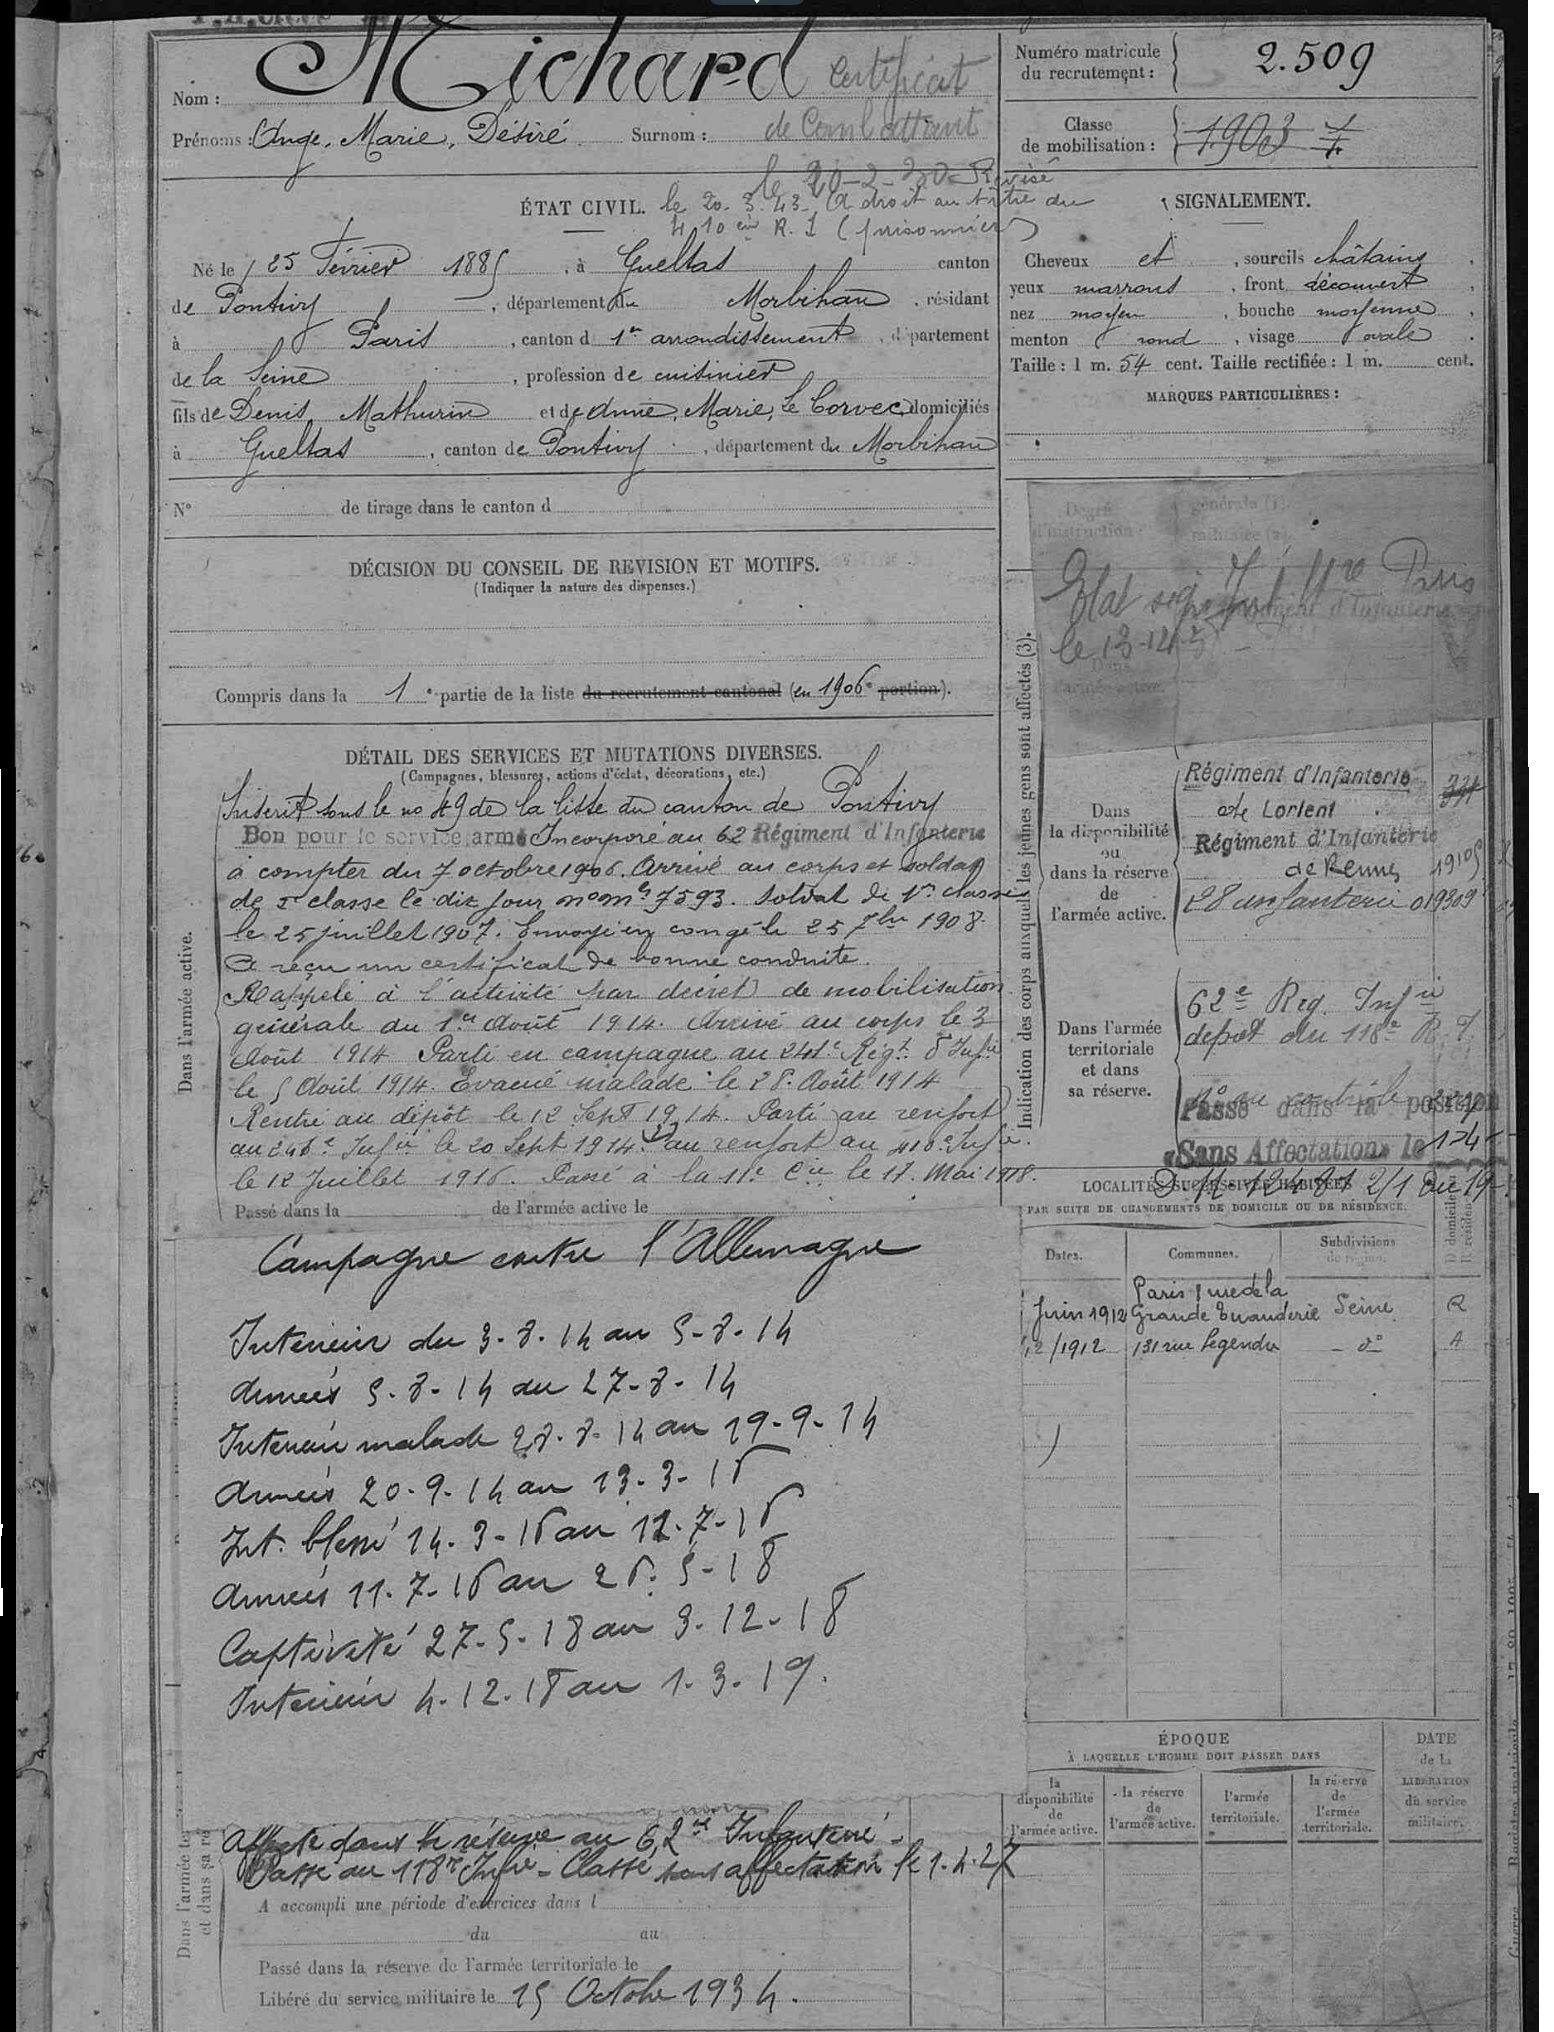 Michard
Nom :
Certificat
de Combattant
le 20-2-30 Revisé
Prénoms : Ange, Marie, Désiré Surnom :
Numéro matricule
du recrutement : 2.509
Classe
de mobilisation : 1903
ÉTAT CIVIL.
le 20. 3. 43. A droit au titre du
410 em R. I (prisonnier)
Né le 25 Février 1885, à Gueltas canton
de Pontivy, département du Morbihan, résidant
à Paris, canton d 1er arrondissement, département
de la Seine, profession de cuisinier
fils de Denis Mathurin et de Anne, Marie, le Corvec, domiciliés
à Gueltas, canton de Pontivy, département du Morbihan
N° de tirage dans le canton d
SIGNALEMENT.
Cheveux et, sourcils châtains,
yeux marrons, front découvert,
nez moyen, bouche moyenne,
menton rond, visage ovale.
Taille : 1 m. 54 cent. Taille rectifiée : 1 m. cent.
MARQUES PARTICULIÈRES :
DÉCISION DU CONSEIL DE REVISION ET MOTIFS.
(Indiquer la nature des dispenses.)
Compris dans la 1e partie de la liste du recrutement cantonal (en 1906 portion).
Degré
d'instruction :
générale (1).
militaire (2).
Etat
Paris
le 13-12
Dans
l'armée active.
Indication des corps auxquels les jeunes gens sont affectés (3).
DÉTAIL DES SERVICES ET MUTATIONS DIVERSES.
(Campagnes, blessures, actions d'éclat, décorations, etc.)
Dans l'armée active.
Inscrit sous le no 49 de la liste du canton de Pontivy
Bon pour le service armé Incorporé au 62 Régiment d'Infanterie
à compter du 7 octobre 1906. Arrivé au corps et soldat
de 2e classe le dix jour no mle 7593. Soldat de 1re classe
le 25 juillet 1907. Envoyé en congé le 25 7bre 1908.
A reçu un certificat de bonne conduite.
Rappelé à l'activité par décret de mobilisation
générale du 1er Août 1914. Arrivé au corps le 3
Août 1914 Parti en campagne au 241e Régt d'Infie
le 5 Août 1914. Evacué malade le 28 Août 1914
Rentré au dépôt le 12 Sept 1914. Parti au renfort
au 246e Infie le 20 Sept 1914. au renfort au 410e Infie.
le 12 Juillet 1916. Passé à la 11e Cie le 17. Mai 1918.
Passé dans la de l'armée active le
Dans
la disponibilité
ou
dans la réserve
de
l'armée active.
Régiment d'Infanterie
de Lorient
Régiment d'Infanterie
de Rennes
28 infanterie 019309
Dans l'armée
territoriale
et dans
sa réserve.
62e Reg. Infie
depot du 118e R. I.
no au contrôle
Passé dans la position
«Sans Affectation» le
LOCALITÉS SUCCESSIVES HABITÉES
PAR SUITE DE CHANGEMENTS DE DOMICILE OU DE RÉSIDENCE.
Dates. Communes. Subdivisions
de région.
D. domicile
R. résidence
Juin 1912 Paris 1 rue de la
Grande Truanderie Seine R
12/1912 131 rue Legendre - do A
Campagne contre l'Allemagne
Intérieur du 3-8-14 au 5-8-14
Armées 5-8-14 au 27-8-14
Intérieur malade 28-8-14 au 19-9-14
Armées 20-9-14 au 13-3-16
Int. blessé 14-3-16 au 11-7-16
Armées 11-7-16 au 26-5-18
Captivité 27-5-18 au 3-12-18
Intérieur 4-12-18 au 1-3-19.
ÉPOQUE
À LAQUELLE L'HOMME DOIT PASSER DANS
la
disponibilité
de
l'armée active.
la réserve
de
l'armée active.
l'armée
territoriale.
la réserve
de
l'armée
territoriale.
DATE
de la
LIBÉRATION
du service
militaire.
Dans l'armée te
et dans sa ré
Affecté dans la réserve au 62me Infanterie -
Passé au 118e Infie - Classé sans affectation le 1-4-27
A accompli une période d'exercices dans l
du au
Passé dans la réserve de l'armée territoriale le
Libéré du service militaire le 15 Octobre 1934.